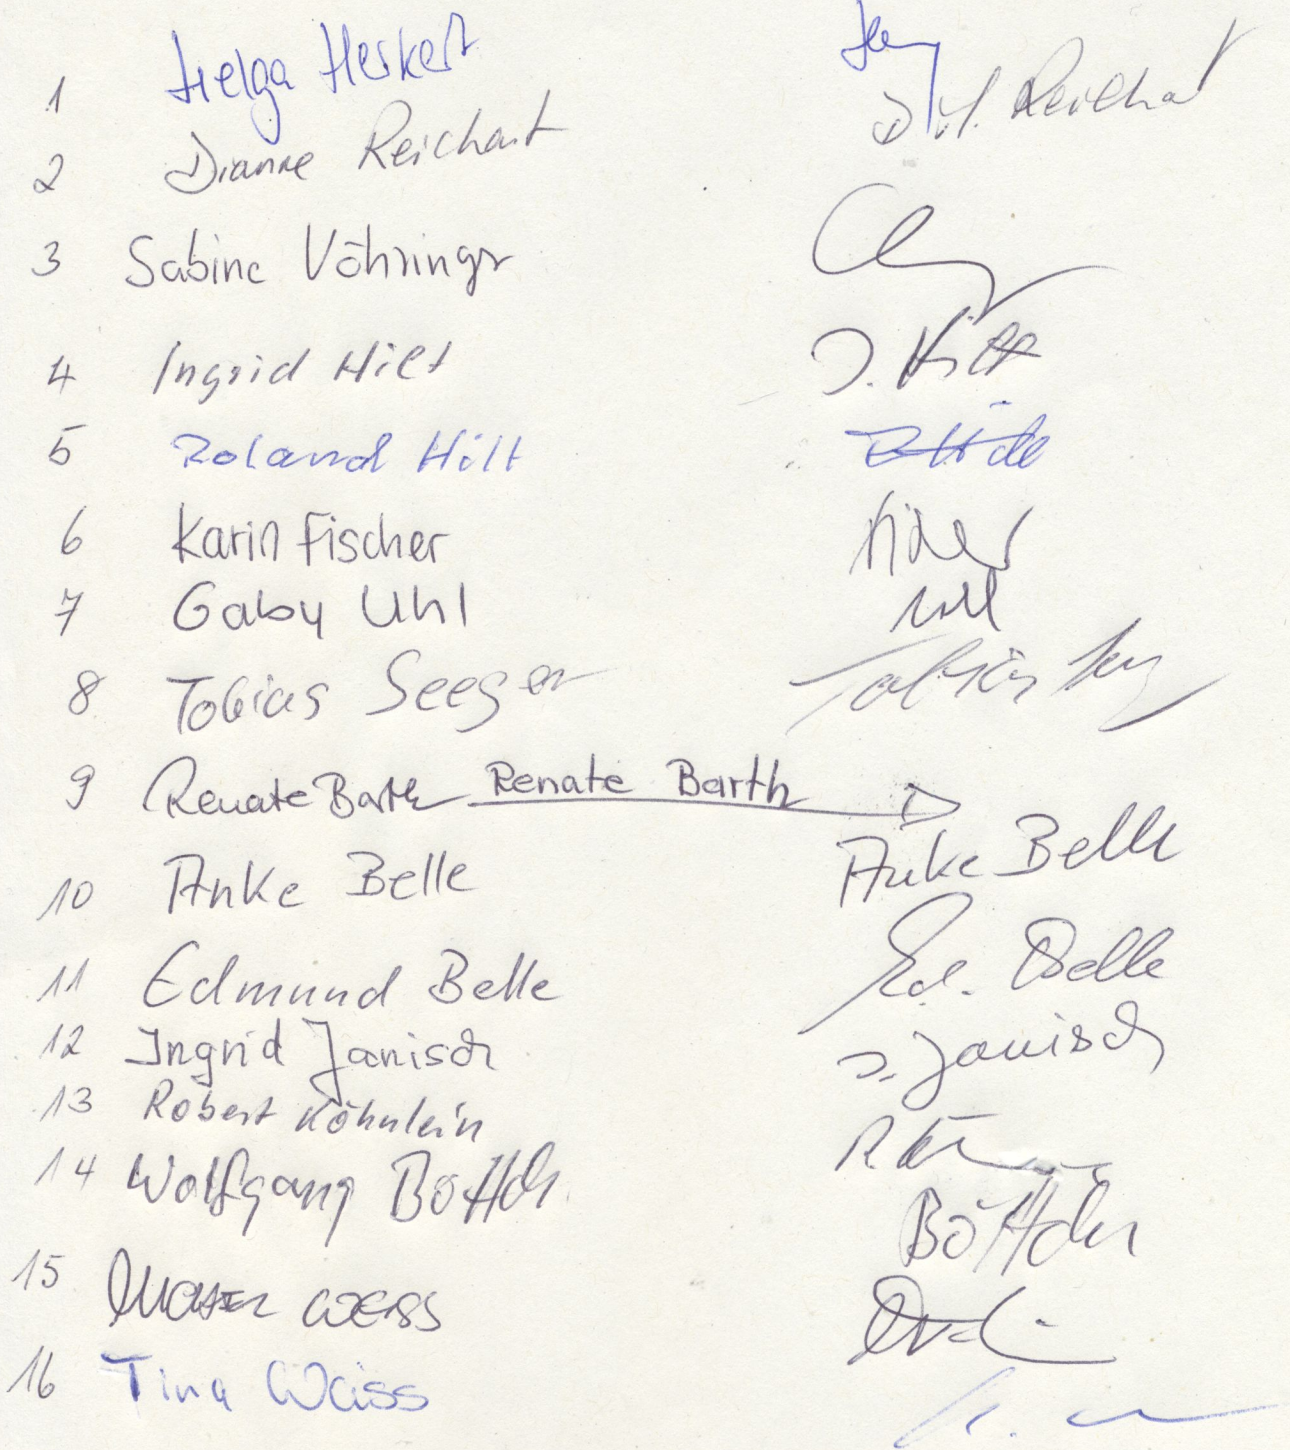 1 Helga Herkert
2 Dianne Reichart D.H. Reichart
3 Sabine Vöhringer
4 Ingrid Hilt I. Hilt
5 Roland Hilt
6 Karin Fischer
7 Gaby Uhl Uhl
8 Tobias Seeger Tobias
9 Renate Barth Renate Barth
10 Anke Belle Anke Belle
11 Edmund Belle Ed. Belle
12 Ingrid Janisch I. Janisch
13 Robert Köhnlein
14 Wolfgang Böttcher Böttcher
15 Weiss
16 Tina Weiss